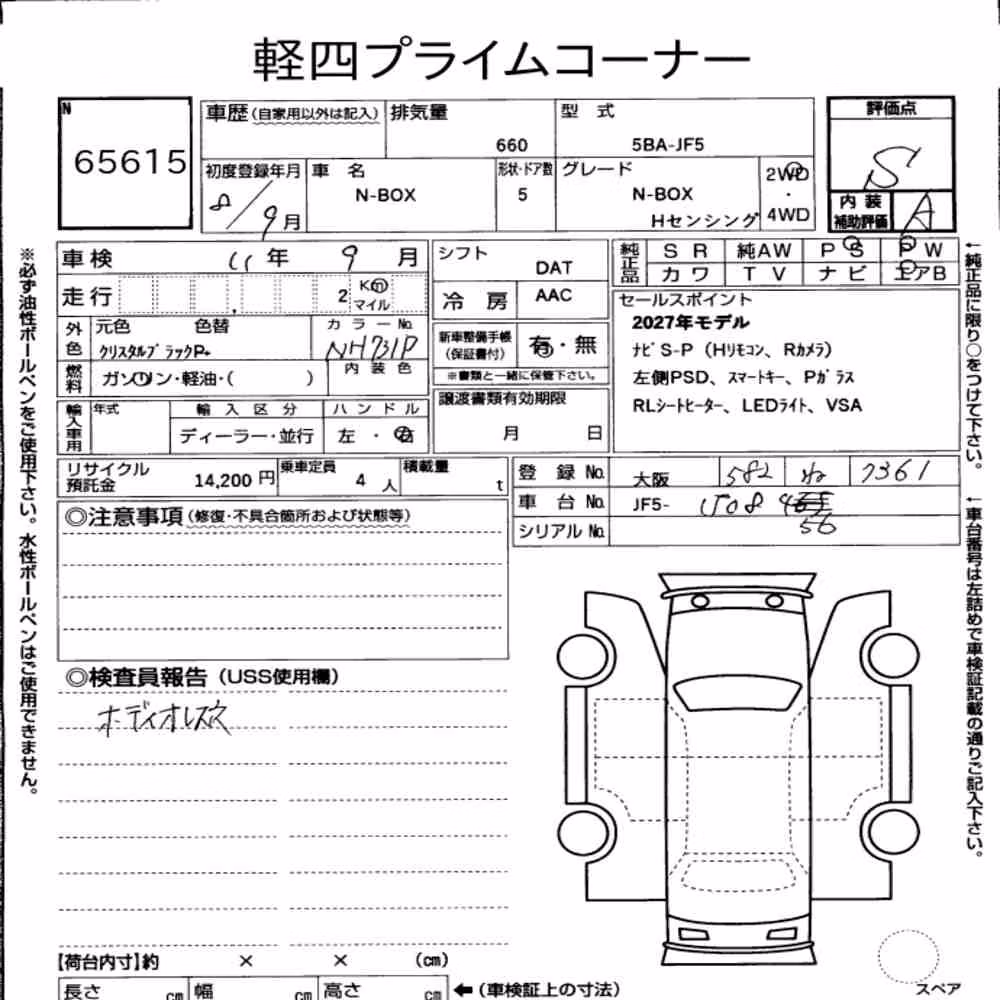 軽四プライムコーナー
N
65615
車歴 (自家用以外は記入)
排気量
660
型 式
5BA-JF5
評価点
S
初度登録年月
8/9月
車 名
N-BOX
形状・ドア数
5
グレード
N-BOX
Hセンシング
2WD
・
4WD
内装
補助評価
A
車検
11年 9 月
シフト
DAT
純正品
S R 純AW P S P W
カワ T V ナビ エアB
走行
2
Km
マイル
冷 房
AAC
セールスポイント
2027年モデル
ナビS-P (Hリモコン、Rカメラ)
左側PSD、スマートキー、Pガラス
RLシートヒーター、LEDライト、VSA
外色
元色 色替
クリスタルブラックP+
カラーNo.
NH731P
新車整備手帳
(保証書付)
有・無
※書類と一緒に保管下さい。
燃料
ガソリン・軽油・( )
内 装 色
譲渡書類有効期限
月 日
輸入車用
年式
輸 入 区 分
ディーラー・並行
ハ ン ド ル
左 ・ 右
リサイクル
預託金
14,200 円
乗車定員
4 人
積載量
t
登 録 No.
大阪 582 ね 7361
車 台 No.
JF5-
シリアル No.
56
◎注意事項 (修復・不具合箇所および状態等)
◎検査員報告 (USS使用欄)
ボディオレスネ
【荷台内寸】約 × × (cm)
長さ cm 幅 cm 高さ cm
←(車検証上の寸法)
スペア
※必ず油性ボールペンをご使用下さい。水性ボールペンはご使用できません。
←純正品に限り○をつけて下さい。
←車台番号は左詰めで車検証記載の通りご記入下さい。